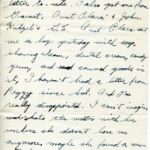 letter to-nite. I also got one from
Garnet, Aunt Clara & John
Aunt Clara sent
me a box yesterday with soap,
shaving cream, dental cream, candy
gum, and canned goods in
it. I haven't had a letter from
Peggy since Sat. And I'm
really disappointed. I can't imagine
what's the matter with her
unless she doesn't love me
anymore, maybe she found a new